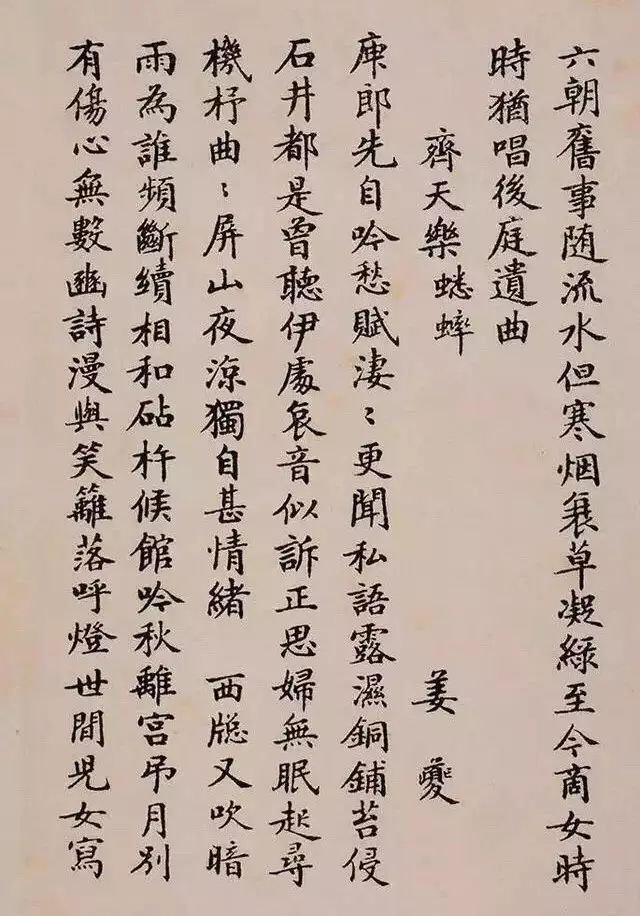 六朝舊事随流水但寒烟衰草凝綠至今商女時
時猶唱後庭遺曲
齊天樂蟋蟀 姜夔
庾郎先自吟愁賦淒〻更聞私語露濕銅鋪苔侵
石井都是曾聽伊處哀音似訴正思婦無眠起尋
機杼曲〻屏山夜涼獨自甚情緒 西牕又吹暗
雨為誰頻斷續相和砧杵候館吟秋離宮吊月別
有傷心無數豳詩漫與笑籬落呼燈世間児女寫